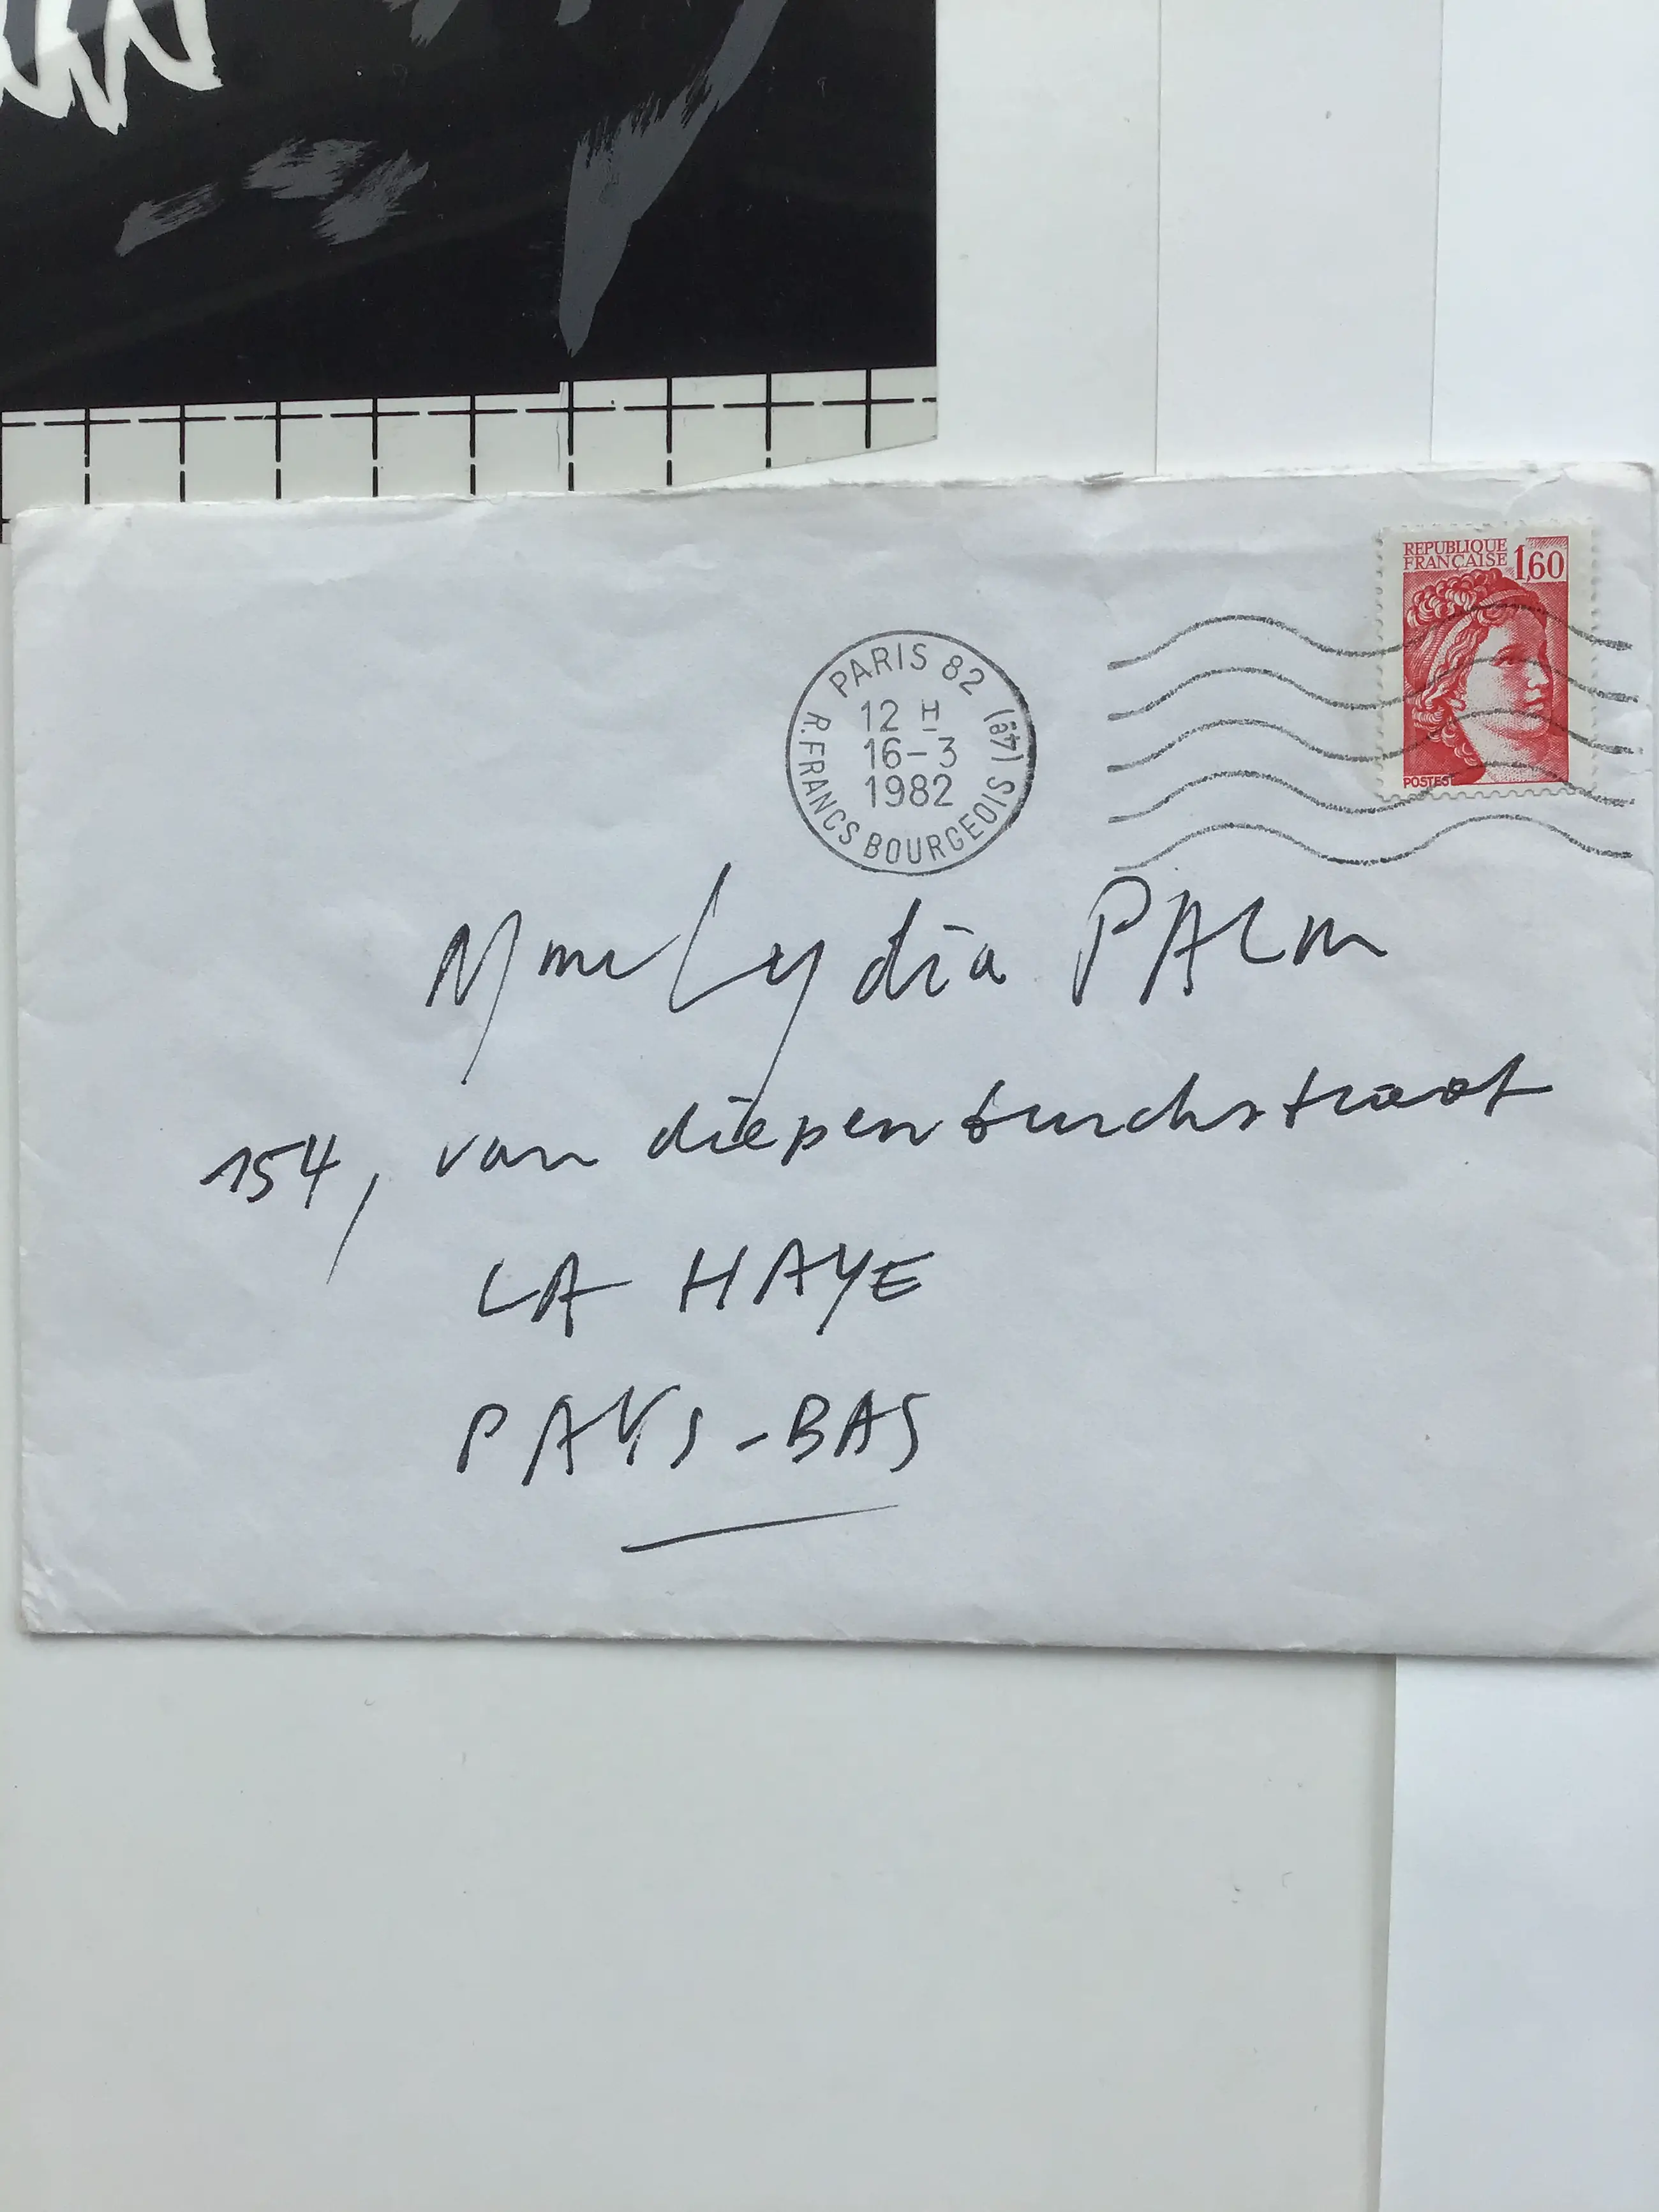 REPUBLIQUE
FRANCAISE 1,60
POSTES
PARIS 82 (4e)
12 H
16-3
1982
R. FRANCS BOURGEOIS
Mme Lydia PALM
154, van diepenburchstraat
LA HAYE
PAYS-BAS